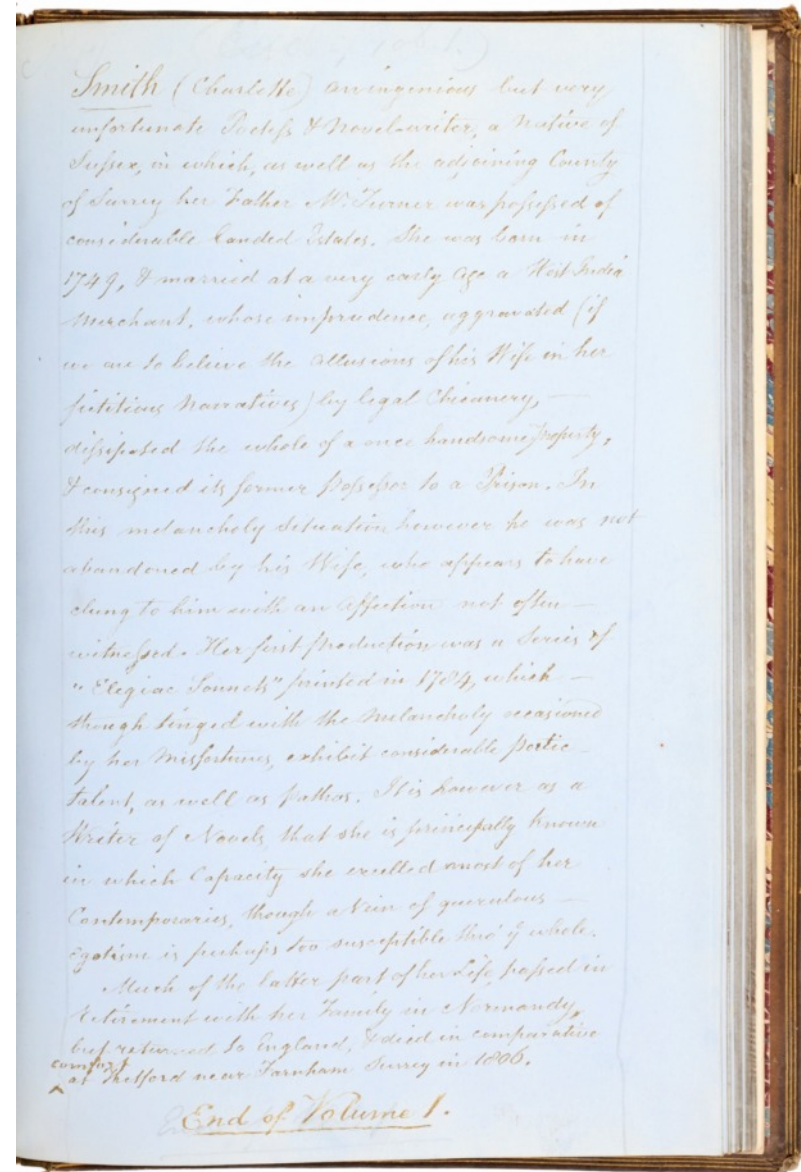 Smith (Charlotte) an ingenious but very
unfortunate Poetess & Novel-writer, a Native of
Sussex, in which, as well as the adjoining County
of Surrey her Father Mr. Turner was possessed of
considerable Landed Estates. She was born in
1749, & married at a very early Age a West India
Merchant, whose imprudence, aggravated (if
we are to believe the Allusions of his Wife in her
fictitious Narratives) by legal Chicanery, —
dissipated the whole of a once handsome Property,
& consigned its former Possessor to a Prison. In
this melancholy situation however he was not
abandoned by his Wife, who appears to have
clung to him with an Affection not often —
witnessed. Her first Production was a Series of
"Elegiac Sonnets" printed in 1784, which —
though tinged with the Melancholy occasioned
by her Misfortunes, exhibit considerable Poetic
Talent, as well as Pathos. It is however as a
Writer of Novels that she is principally known
in which Capacity she excelled most of her
Contemporaries, though a Vein of querulous —
Egotism is perhaps too susceptible thro' ye whole.
Much of the latter part of her Life passed in
Retirement with her Family in Normandy,
but returned to England, & died in comparative
comfort
at Thetford near Farnham Surrey in 1806.
End of Volume 1.